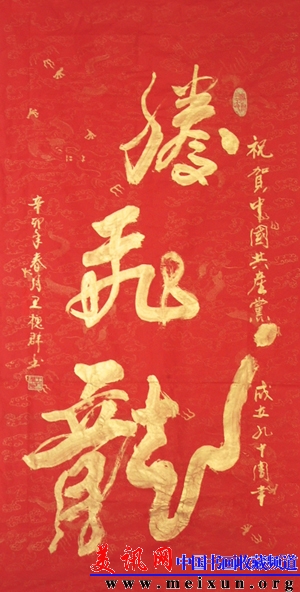 祝賀中國共產黨
成立九十周年
騰飛龍
辛卯年春月王
群书
美讯网
中国书画收藏频道
www.meixun.org